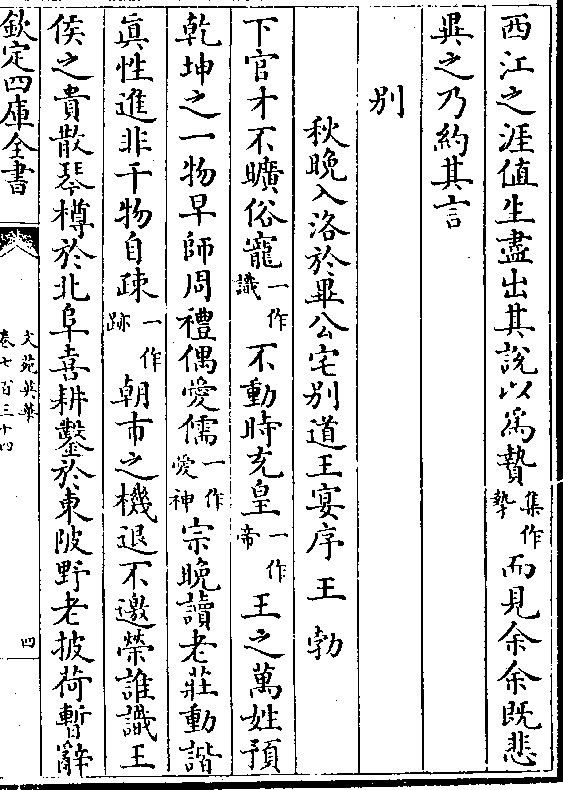 西江之涯值生盡出其說以爲贄集作摯而見余余既悲
異之乃約其言
別
秋晚入洛於畢公宅别道王宴序王勃
下官才不曠俗寵一作識不動時充皇一作帝王之萬姓預
乾坤之一物早師周禮偶愛儒一作愛神宗晚讀老莊動諧
眞性進非干物自疎一作跡朝市之機退不邀榮誰識王
侯之貴散琴樽於北阜喜耕鑿於東陂野老披荷暫辭
欽定四庫全書
文苑英華
卷七百三十四
四